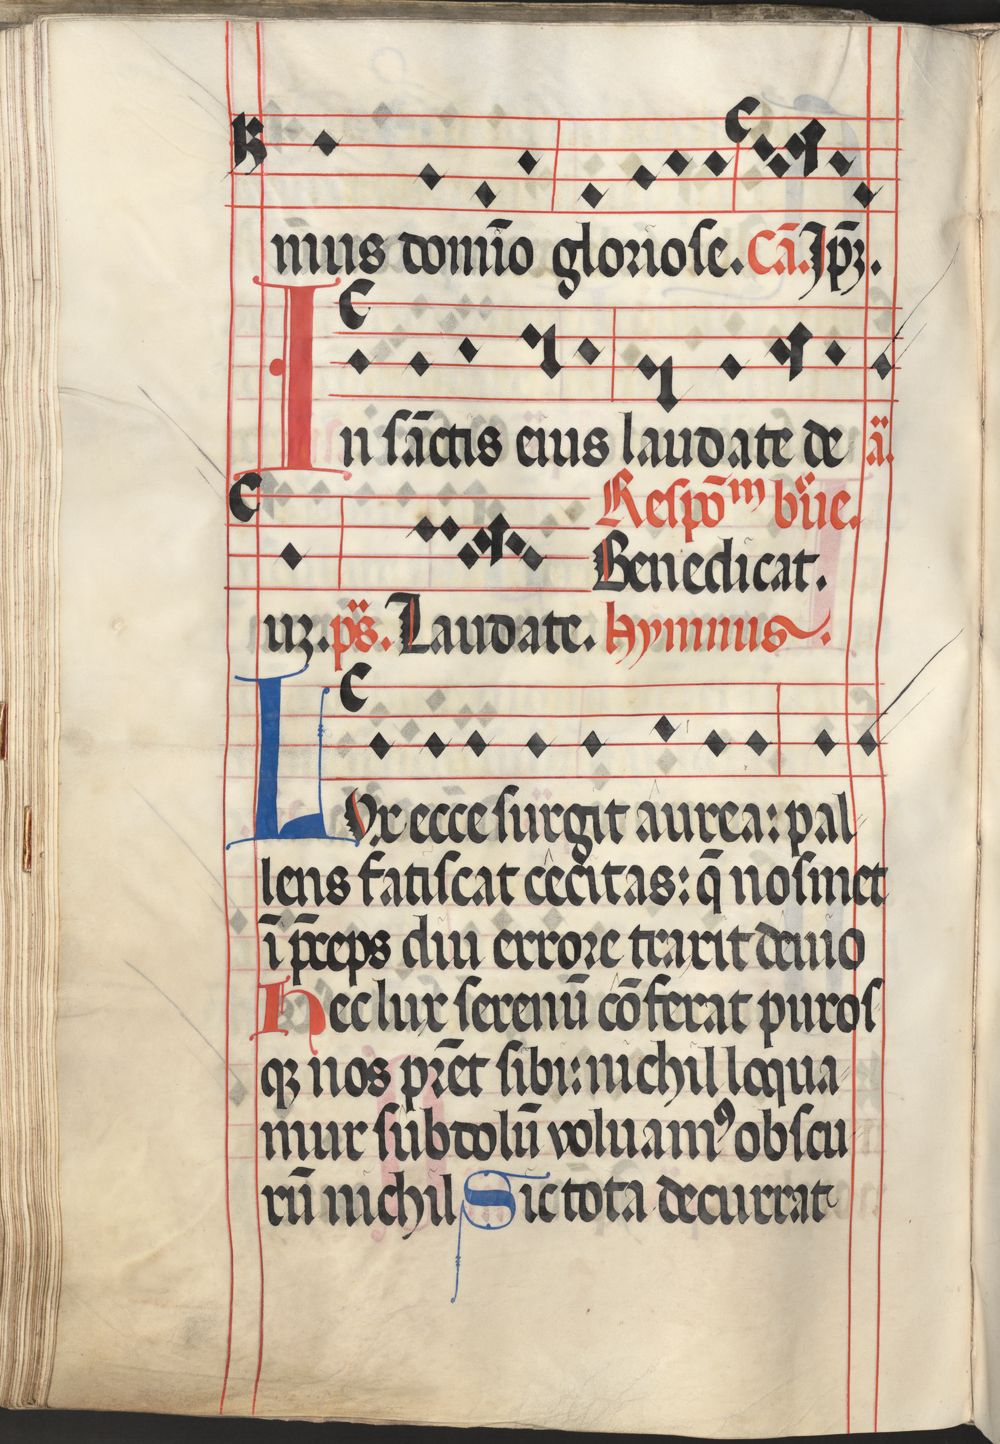 mus domīo gloriose. Cā. Ip̄ꝫ.
In sāctis eius laudate de ā.
Respō m br̄ue.
Benedicat.
uꝫ. ps̄. Laudate. hymnus.
Lux ecce surgit aurea: pal
lens fatiscat cecitas: q̄ nosmet
ī p̄ceps diu errore traxit deuio
Hec lux serenū cōferat puros
qꝫ nos pr̄et sibi: nichil loqua
mur subdolū voluamꝰ obscu
rū nichil Sic tota decurrat